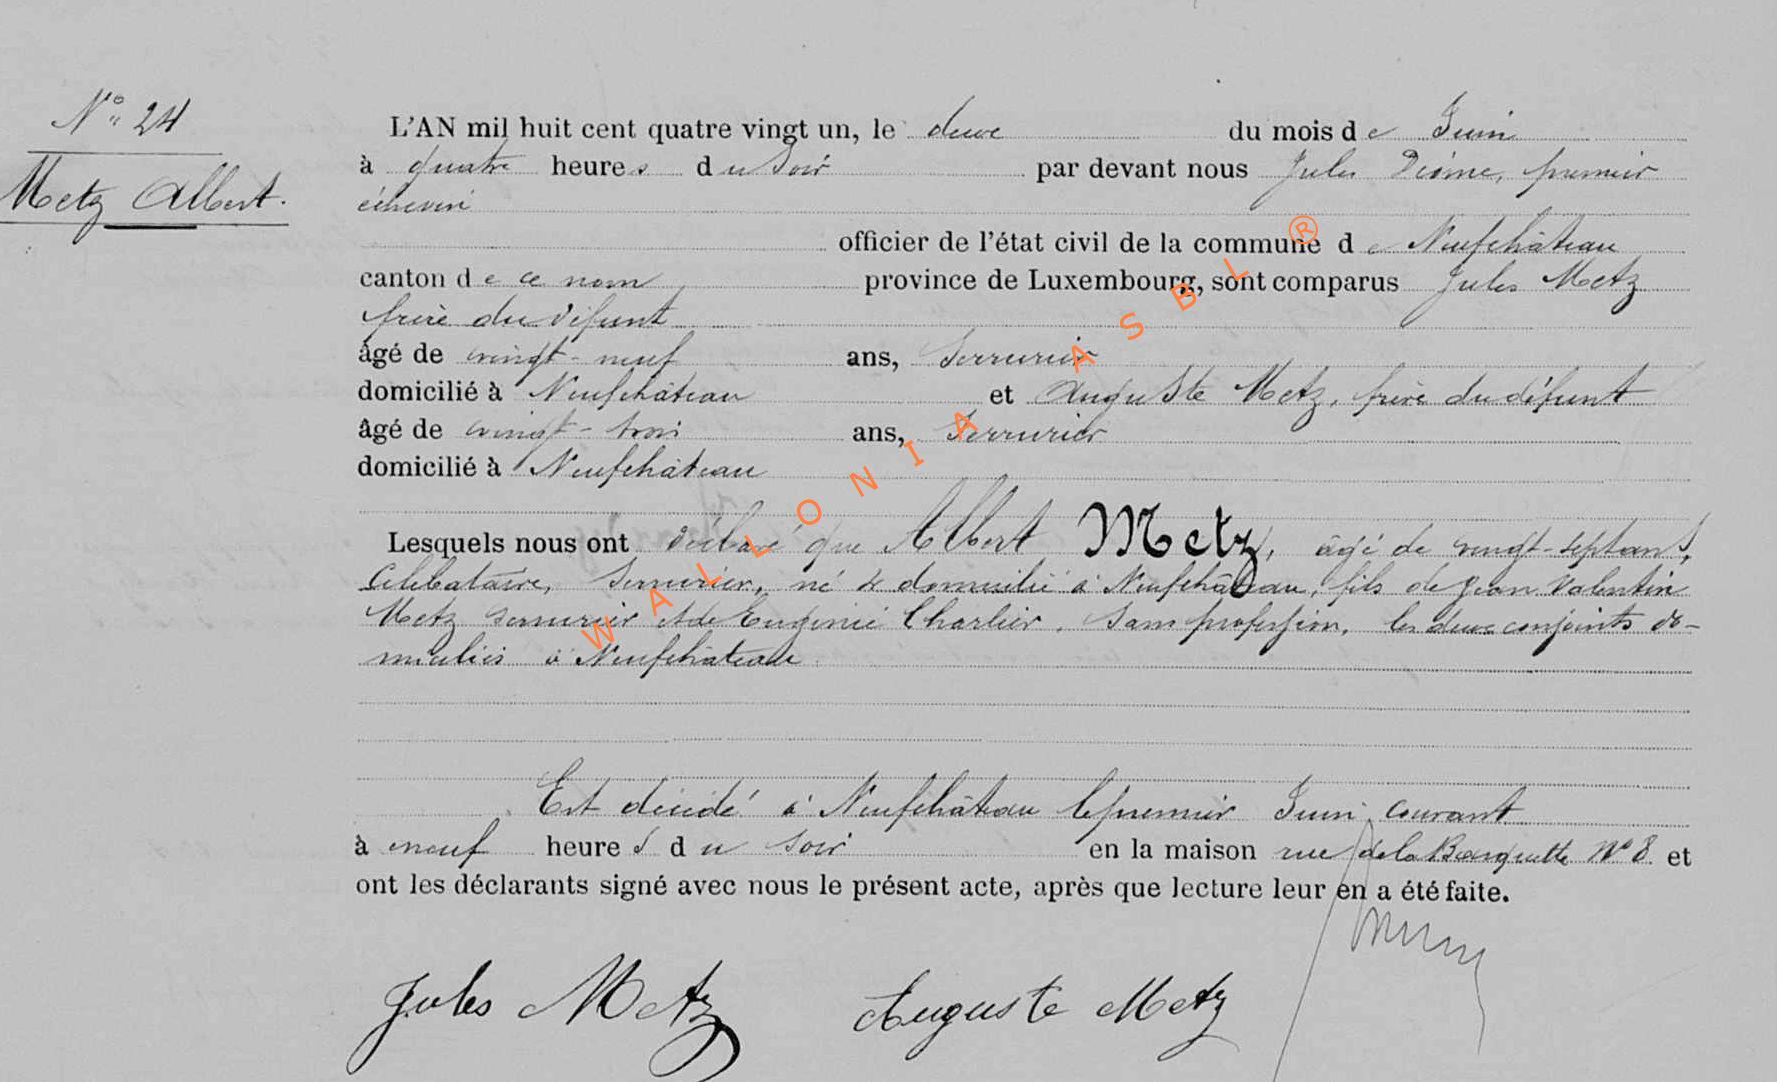 N° 24
Metz Albert.
L'AN mil huit cent quatre vingt un, le deux du mois de Juin
à quatre heures du Soir par devant nous Jules premier
échevin
officier de l'état civil de la commune de Neufchâteau
canton de ce nom province de Luxembourg, sont comparus Jules Metz
frère du défunt
âgé de vingt-neuf ans, Serrurier
domicilié à Neufchâteau et Auguste Metz, frère du défunt
âgé de vingt-trois ans, Serrurier
domicilié à Neufchâteau
Lesquels nous ont déclaré que Albert Metz, âgé de vingt-sept ans,
Célibataire, Serrurier, né & domicilié à Neufchâteau, fils de Jean Valentin
Metz serrurier et de Eugénie Charlier, Sans profession, les deux conjoints do-
miciliés à Neufchâteau.
Est décédé à Neufchâteau le premier Juin courant
à neuf heures du soir en la maison rue de la Barquette N° 8 et
ont les déclarants signé avec nous le présent acte, après que lecture leur en a été faite.
Jules Metz Auguste Metz
WALLONIA ASBL ®